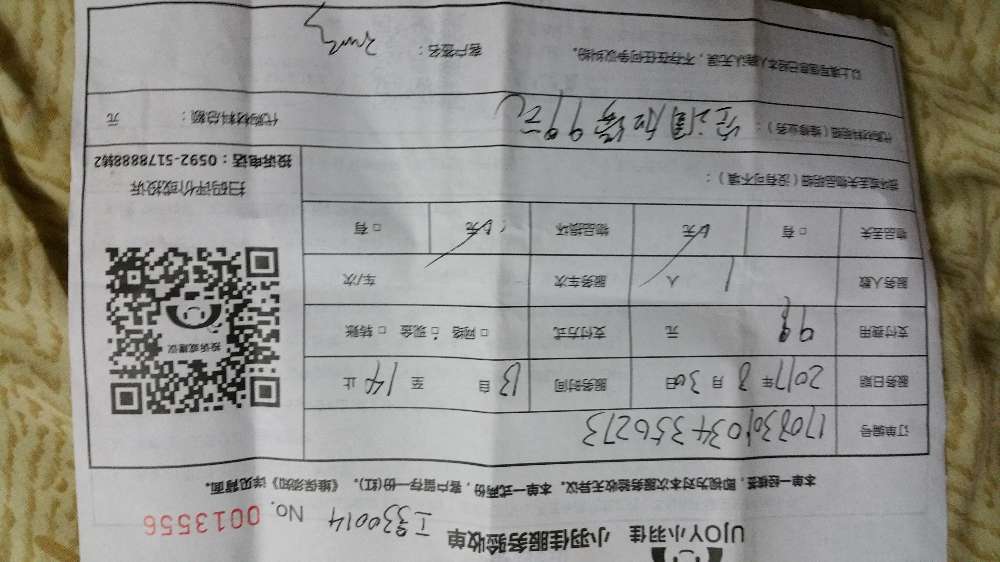 UJOY小羽佳 小羽佳服务验收单
工号330014 No. 0013556
本单一经填签，即视为对本次服务验收无异议。本单一式两份，客户留存一份(红)。《维保须知》详见背面。
订单编号 1708301034356273
服务日期 2017年 8 月 30日 服务时间 自 13 至 14 止
支付费用 98 元 支付方式 □ 网络 □ 现金 □ 转账
服务人数 1 人 服务车次 车/次
物品丢失 □ 有 □ 无 物品损坏 □ 无 □ 有
损坏或丢失物品明细（没有可不填）：
投诉或建议
扫码评价或投诉
投诉电话：0592-5178888转2
代购材料明细（维修业务）： 空调加 98元
代购材料总额： 元
以上填写信息已经本人确认无误，不存在任何争议纠纷。 客户签名：